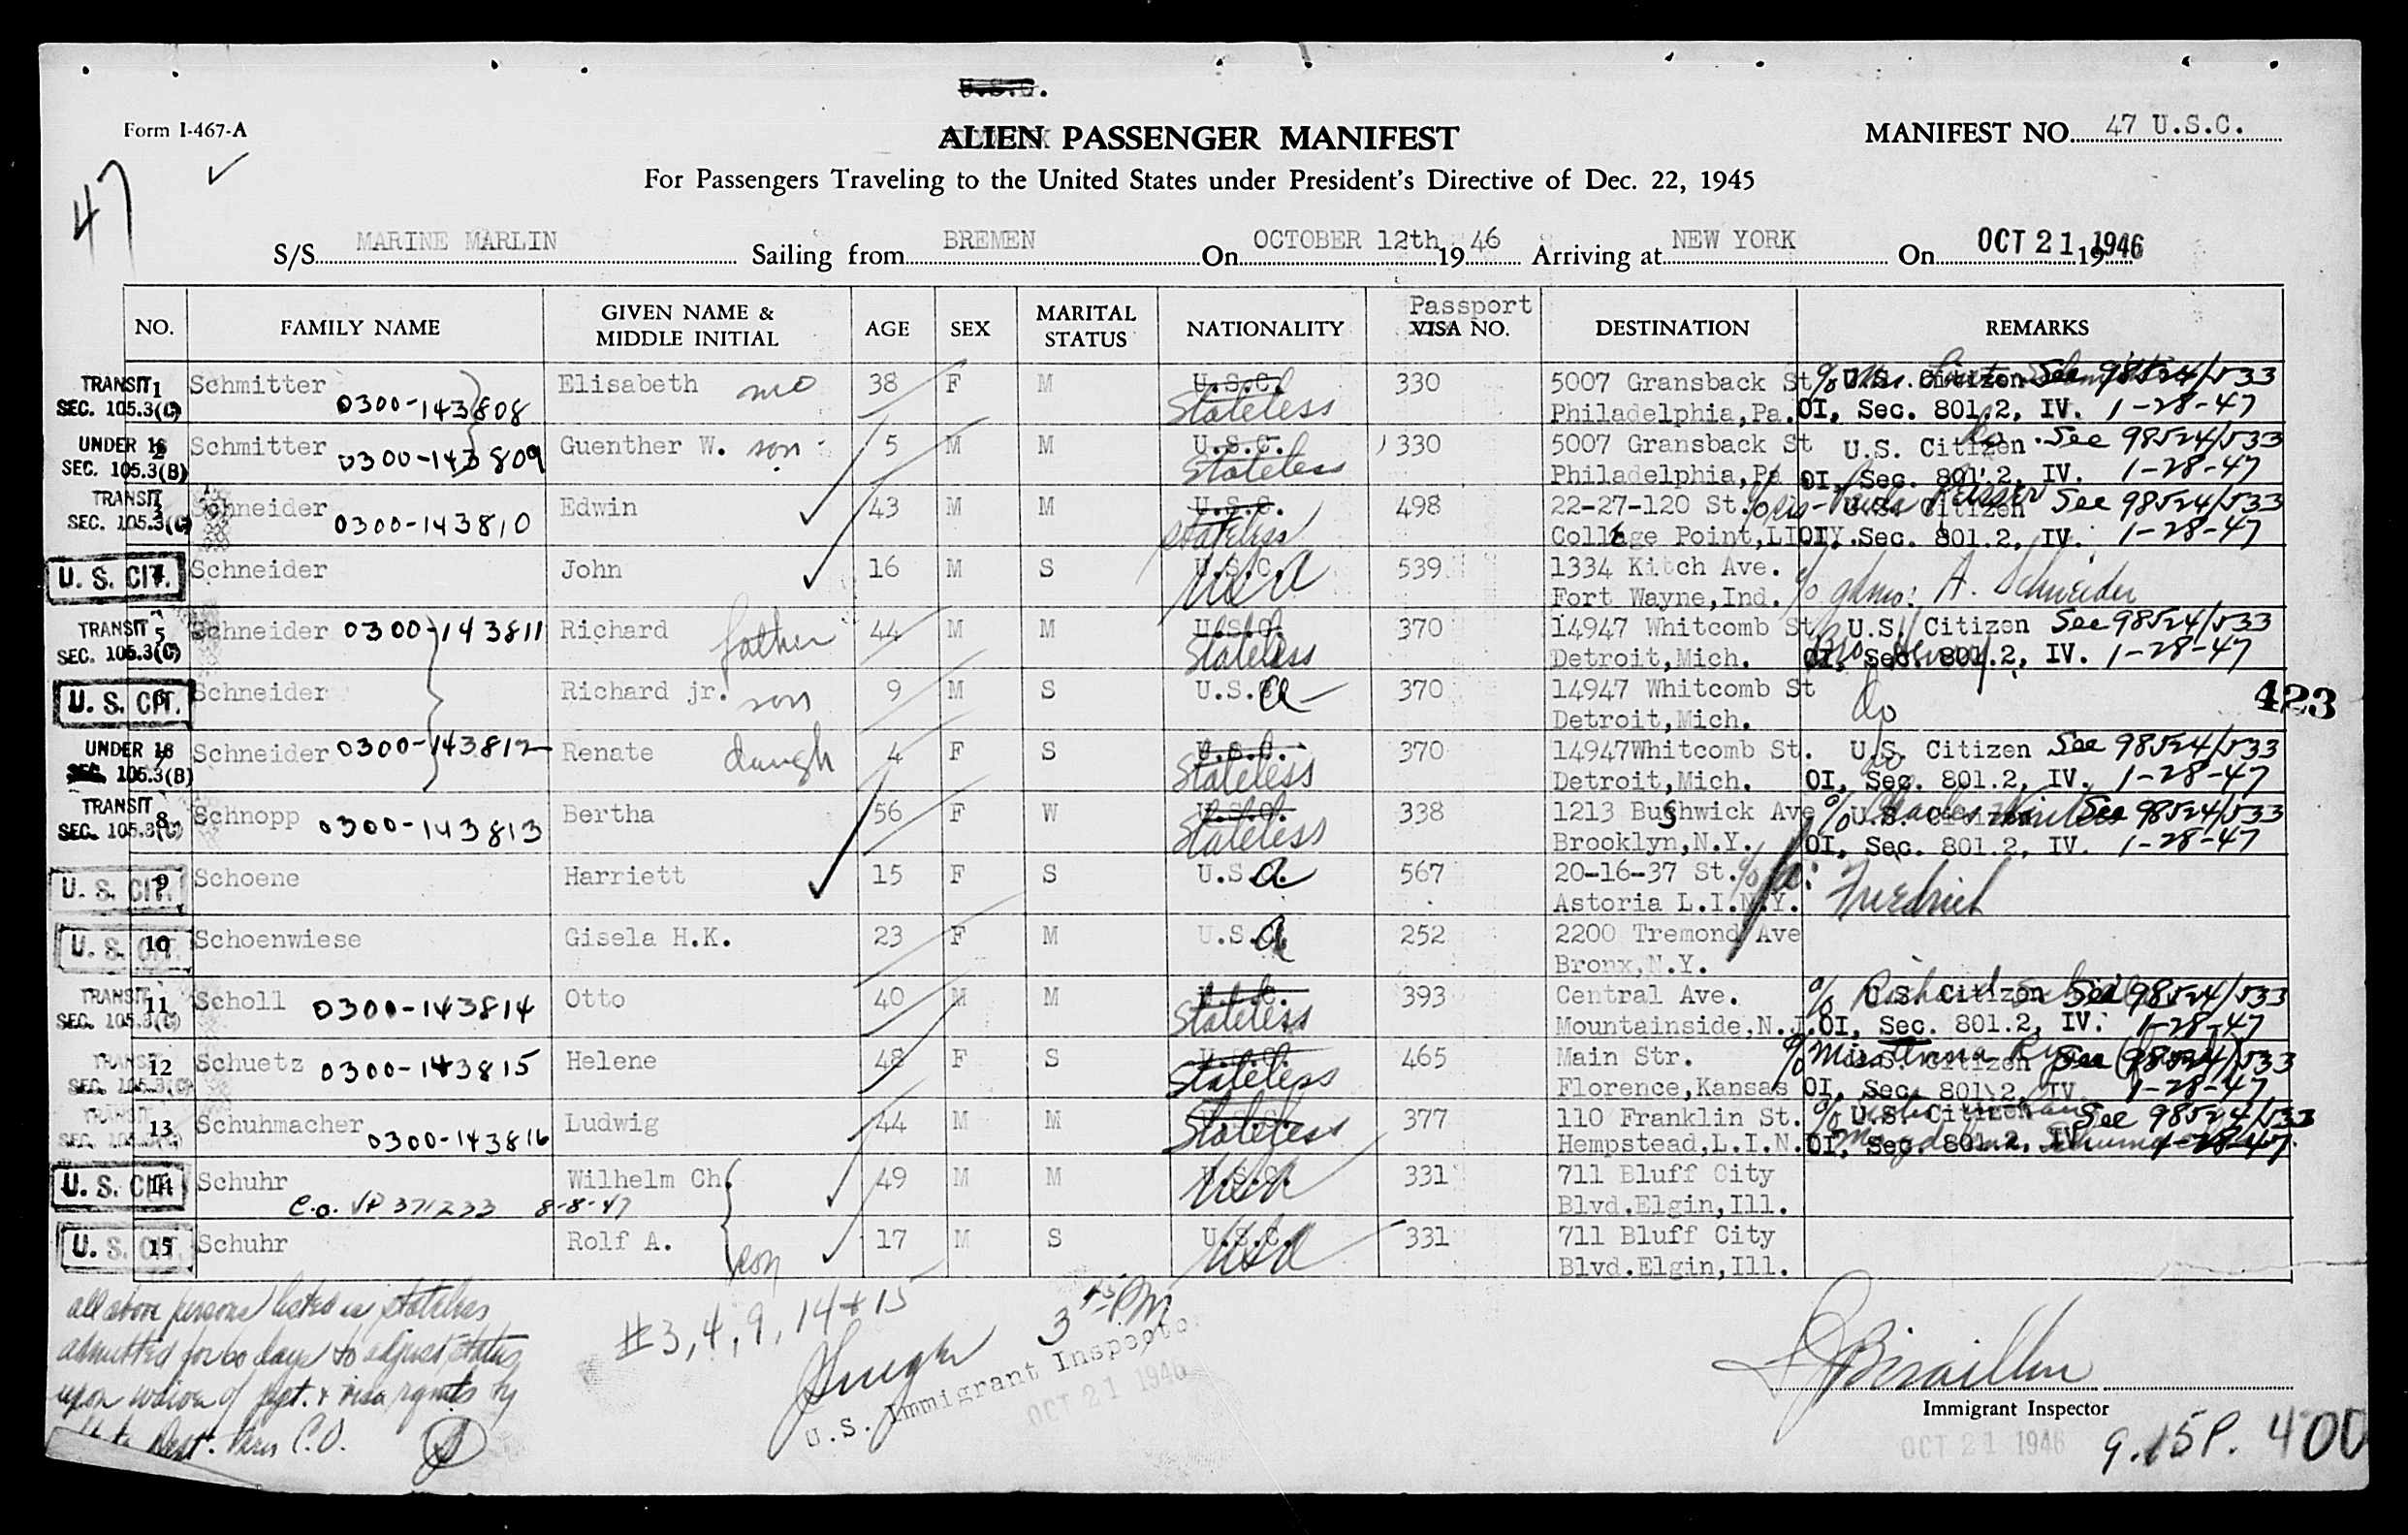 U.S.C.
Form I-467-A
ALIEN PASSENGER MANIFEST
MANIFEST NO. 47 U.S.C.
47
For Passengers Traveling to the United States under President's Directive of Dec. 22, 1945
S/S MARINE MARLIN Sailing from BREMEN On OCTOBER 12th 19 46 Arriving at NEW YORK On OCT 21 1946 19
NO. FAMILY NAME GIVEN NAME & MIDDLE INITIAL AGE SEX MARITAL STATUS NATIONALITY Passport VISA NO. DESTINATION REMARKS
TRANSIT 1 Schmitter Elisabeth mo 38 F M U.S.C. 330 5007 Gransback St c/o U.S. Citizen See 98524/533
SEC. 105.3(C) 0300-143808 Stateless Philadelphia,Pa. OI, Sec. 801.2, IV. 1-28-47
UNDER 16 2 Schmitter Guenther W. son 5 M M U.S.C. 330 5007 Gransback St U.S. Citizen See 98524/533
SEC. 105.3(B) 0300-143809 Stateless Philadelphia,Pa OI, Sec. 801.2, IV. 1-28-47
TRANSIT 3 Schneider Edwin 43 M M U.S.C. 498 22-27-120 St. U.S. Citizen See 98524/533
SEC. 105.3(C) 0300-143810 Stateless College Point,LI OI, Sec. 801.2, IV. 1-28-47
U. S. CIT. 4 Schneider John 16 M S U.S.C. USA 539 1334 Kitch Ave.
Fort Wayne,Ind. c/o A. Schneider
TRANSIT 5 Schneider 0300-143811 Richard father 44 M M U.S.C. 370 14947 Whitcomb St. U.S. Citizen See 98524/533
SEC. 105.3(C) Stateless Detroit,Mich. OI, Sec. 801.2, IV. 1-28-47
U. S. CIT. 6 Schneider Richard jr. son 9 M S U.S.A 370 14947 Whitcomb St do
Detroit,Mich.
423
UNDER 16 7 Schneider 0300-143812 Renate daugh 4 F S U.S.C. 370 14947Whitcomb St. U.S. Citizen See 98524/533
SEC. 105.3(B) Stateless Detroit,Mich. do OI, Sec. 801.2, IV. 1-28-47
TRANSIT 8 Schnopp 0300-143813 Bertha 56 F W U.S.C. 338 1213 Bushwick Ave c/o Charles U.S. Citizen See 98524/533
SEC. 105.3(C) Stateless Brooklyn,N.Y. OI, Sec. 801.2, IV. 1-28-47
U. S. CIT. 9 Schoene Harriett 15 F S U.S.A 567 20-16-37 St. c/o fa:
Astoria L.I.N.Y. Friedrich
U. S. CIT. 10 Schoenwiese Gisela H.K. 23 F M U.S.A 252 2200 Tremond Ave
Bronx,N.Y.
TRANSIT 11 Scholl 0300-143814 Otto 40 M M U.S.C. 393 Central Ave. c/o Richard U.S. Citizen See 98524/533
SEC. 105.3(C) Stateless Mountainside,N.J. OI, Sec. 801.2, IV. 1-28-47
TRANSIT 12 Schuetz 0300-143815 Helene 48 F S U.S.C. 465 Main Str. c/o Miss Anna U.S. Citizen See 98524/533
SEC. 105.3(C) Stateless Florence,Kansas OI, Sec. 801.2, IV 1-28-47
TRANSIT 13 Schuhmacher Ludwig 44 M M U.S.C. 377 110 Franklin St. c/o U.S. Citizen See 98524/533
SEC. 105.3(C) 0300-143816 Stateless Hempstead,L.I.N. OI, Sec. 801.2, IV. 1-28-47
U. S. CIT. 14 Schuhr Wilhelm Ch. 49 M M U.S.C. USA 331 711 Bluff City
C.O. VP 371233 8-8-47 Blvd.Elgin,Ill.
U. S. CIT. 15 Schuhr Rolf A. son 17 M S U.S.C. USA 331 711 Bluff City
Blvd.Elgin,Ill.
all above persons listed as stateless
admitted for 60 days to adjust status
upon waiver of ppt. & visa rqmts by
State Dept. Paris C.O.
#3, 4, 9, 14 + 15
3 45 PM
U.S. Immigrant Inspector
OCT 21 1946
Immigrant Inspector
OCT 21 1946
9.15P. 400